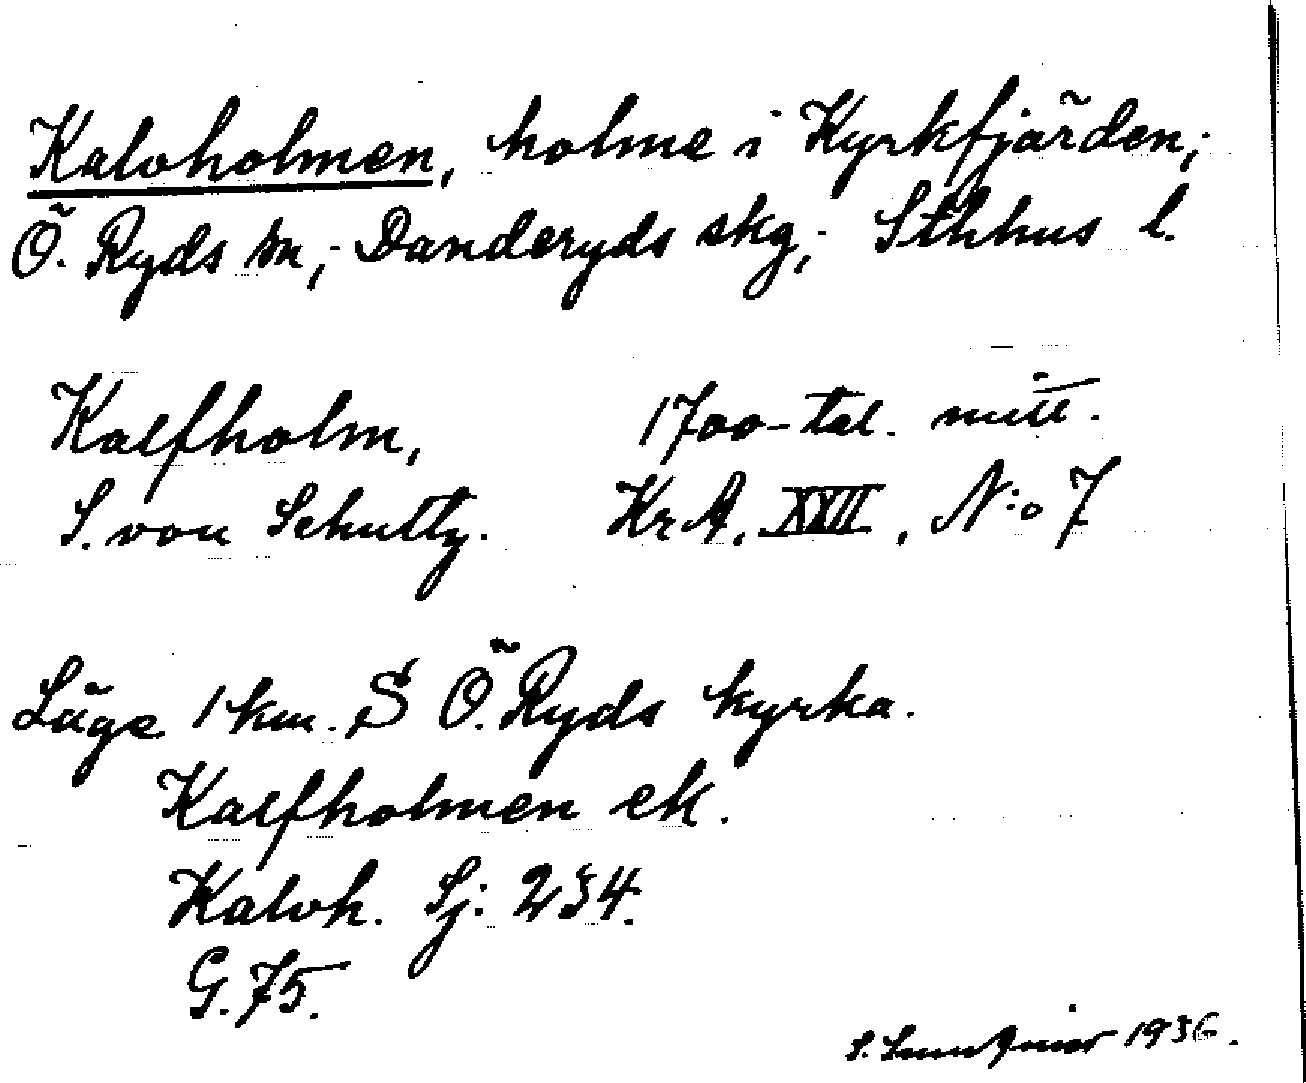 Kalvholmen, holme i Kyrkfjärden;
Ö. Ryds sn; Danderyds skg; Sthlms l.
Kalfholm, 1700-tal. mitt.
S. von Schultz. KrA. XVII, N:o 7
Läge 1 km. S Ö. Ryds kyrka.
Kalfholmen ek.
Kalvh. Sj: 234.
G. 75.
S. 1936.